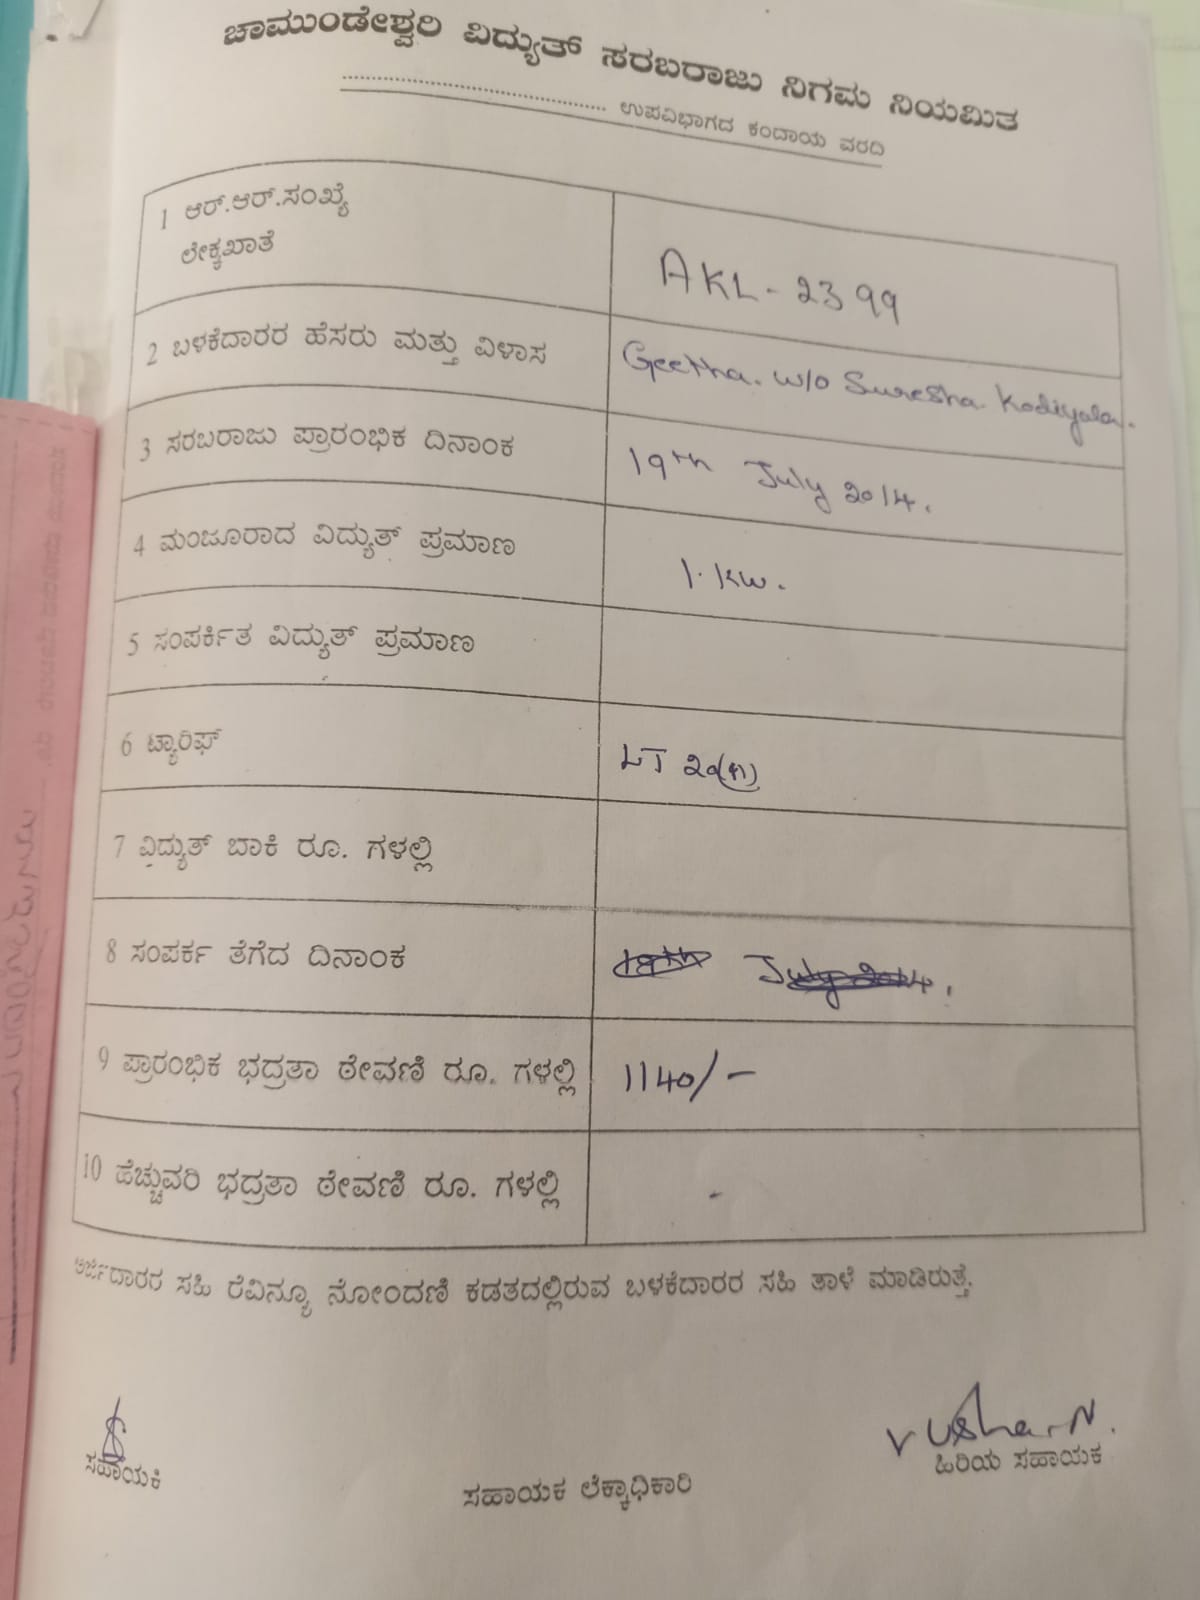 ಚಾಮುಂಡೇಶ್ವರಿ ವಿದ್ಯುತ್ ಸರಬರಾಜು ನಿಗಮ ನಿಯಮಿತ
.................................................... ಉಪವಿಭಾಗದ ಕಂದಾಯ ವರದಿ
1 ಆರ್.ಆರ್.ಸಂಖ್ಯೆ
ಲೇಕ್ಕಖಾತೆ
AKL - 2399
2 ಬಳಕೆದಾರರ ಹೆಸರು ಮತ್ತು ವಿಳಾಸ
Geetha. w/o Suresha. Kodiyala.
3 ಸರಬರಾಜು ಪ್ರಾರಂಭಿಕ ದಿನಾಂಕ
19th July 2014.
4 ಮಂಜೂರಾದ ವಿದ್ಯುತ್ ಪ್ರಮಾಣ
1. KW.
5 ಸಂಪರ್ಕಿತ ವಿದ್ಯುತ್ ಪ್ರಮಾಣ
6 ಟ್ಯಾರಿಫ್
LT
7 ವಿದ್ಯುತ್ ಬಾಕಿ ರೂ. ಗಳಲ್ಲಿ
8 ಸಂಪರ್ಕ ತೆಗೆದ ದಿನಾಂಕ
July 2014.
9 ಪ್ರಾರಂಭಿಕ ಭದ್ರತಾ ಠೇವಣಿ ರೂ. ಗಳಲ್ಲಿ
1140/-
10 ಹೆಚ್ಚುವರಿ ಭದ್ರತಾ ಠೇವಣಿ ರೂ. ಗಳಲ್ಲಿ
-
ಅರ್ಜಿದಾರರ ಸಹಿ ರೆವಿನ್ಯೂ ನೋಂದಣಿ ಕಡತದಲ್ಲಿರುವ ಬಳಕೆದಾರರ ಸಹಿ ತಾಳೆ ಮಾಡಿರುತ್ತೆ.
Usha. N.
ಸಹಾಯಕಿ
ಸಹಾಯಕ ಲೆಕ್ಕಾಧಿಕಾರಿ
ಹಿರಿಯ ಸಹಾಯಕ